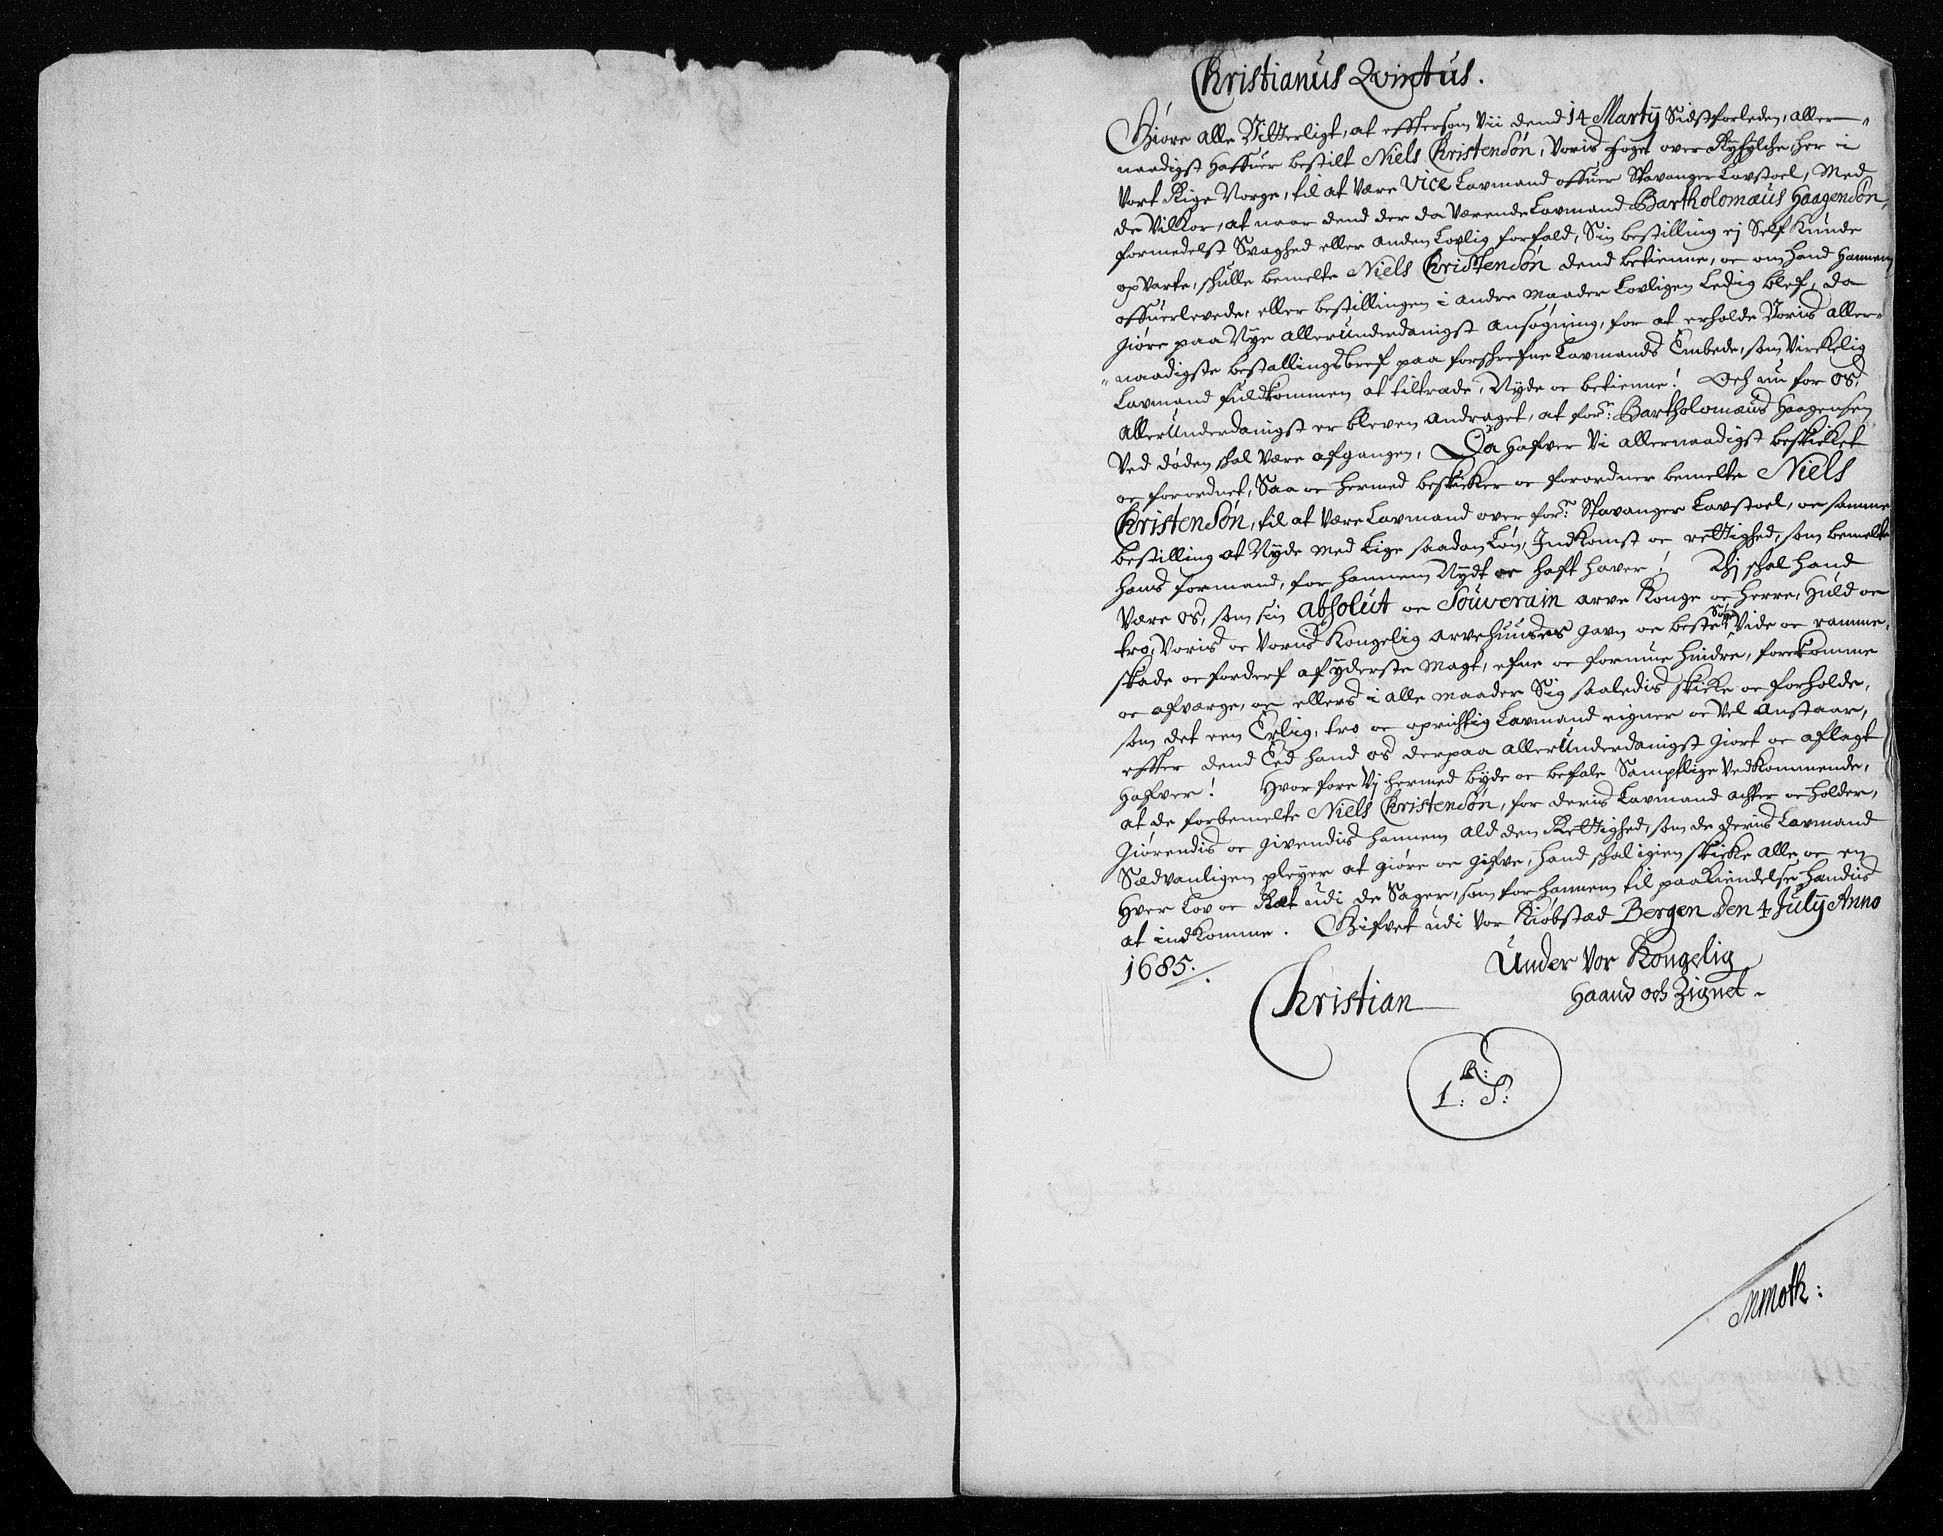 Christianus Qvintus.
Giøre alle Vitterligt, at efftersom Vii dend 14 Martÿ Sidstforleden, aller-
naadigst haffuer bestilt Niels Christensøn, Voris foget over Ryfylche her i
Vort Rige Norge, til at Være Vice Lavmand offuer Stavanger Lavstoel, Med
de Vilkor, at naar dend der da Værende Lavmand Bartholomæus Haagensøn,
formedelst Svaghed eller anden Lovlig forfald, Sin bestilling ej Self Kunde
opvarte, skulle bemelte Niels Christensøn dend betienne, oc om hand hannem
offuerlevede, eller bestillingen i andre maader Lovligen Ledig blef, da
giøre paa Nye allerUnderdanigst Ansøgning, for at erholde Voris aller-
naadigste bestallingsbref paa forschrefne Lavmands Embede, som Virkelig
Lavmand fuldkommen at tiltræde, Nyde oc betienne! Och nu for os,
AllerUnderdanigst er bleven Andraget, at forn: Bartholomæus Haagensen
Ved døden skal Være afgangen, Da hafver Vi allernaadigst beskicket
oc forordnet, Saa oc hermed beskicker oc forordner bemelte Niels
Christensøn, til at Være Lavmand over forn: Stavanger Lavstoel, oc samme
bestilling at Nyde med Lige saadan Løn, Indkomst oc rettighed, som bemelte
hans formand, for hannem Nydt oc haft haver! Thj skal hand
Være os, som sin absolut oc Souverain arve Konge oc Herre, Huld oc
tro, Voris oc Voris Kongelig arvehuuses gavn oc beste Søge, Vide oc ramme,
skade oc forderf af yderste Magt, efne oc formue hindre, forekomme
oc afværge, oc ellers i alle maader Sig saaledis skicke oc forholde,
som det een Erlig, tro oc oprichtig Lavmand eigner oc Vel Anstaar,
effter dend Eed hand os derpaa allerUnderdanigst giort oc aflagt
hafver! Hvorfore Vj hermed byde oc befale Samptlige Vedkommende,
at de forbemelte Niels Christensøn, for deris Lavmand achter oc holder,
Giørendis oc givendis hannem ald den Rettighed, som de deris Lavmand
Sædvanligen pleyer at giøre oc gifve, hand skal igien skicke alle oc en
Hver Lov oc Ræt udi de Sager, som for hannem til paakiendelse handis
at indkomme. Gifvet udi Vor Kiøbstad Bergen den 4 Julÿ Anno
1685.
Under Vor Kongelig
Haand och Zignet.
Christian
R:
L: S:
MMoth: